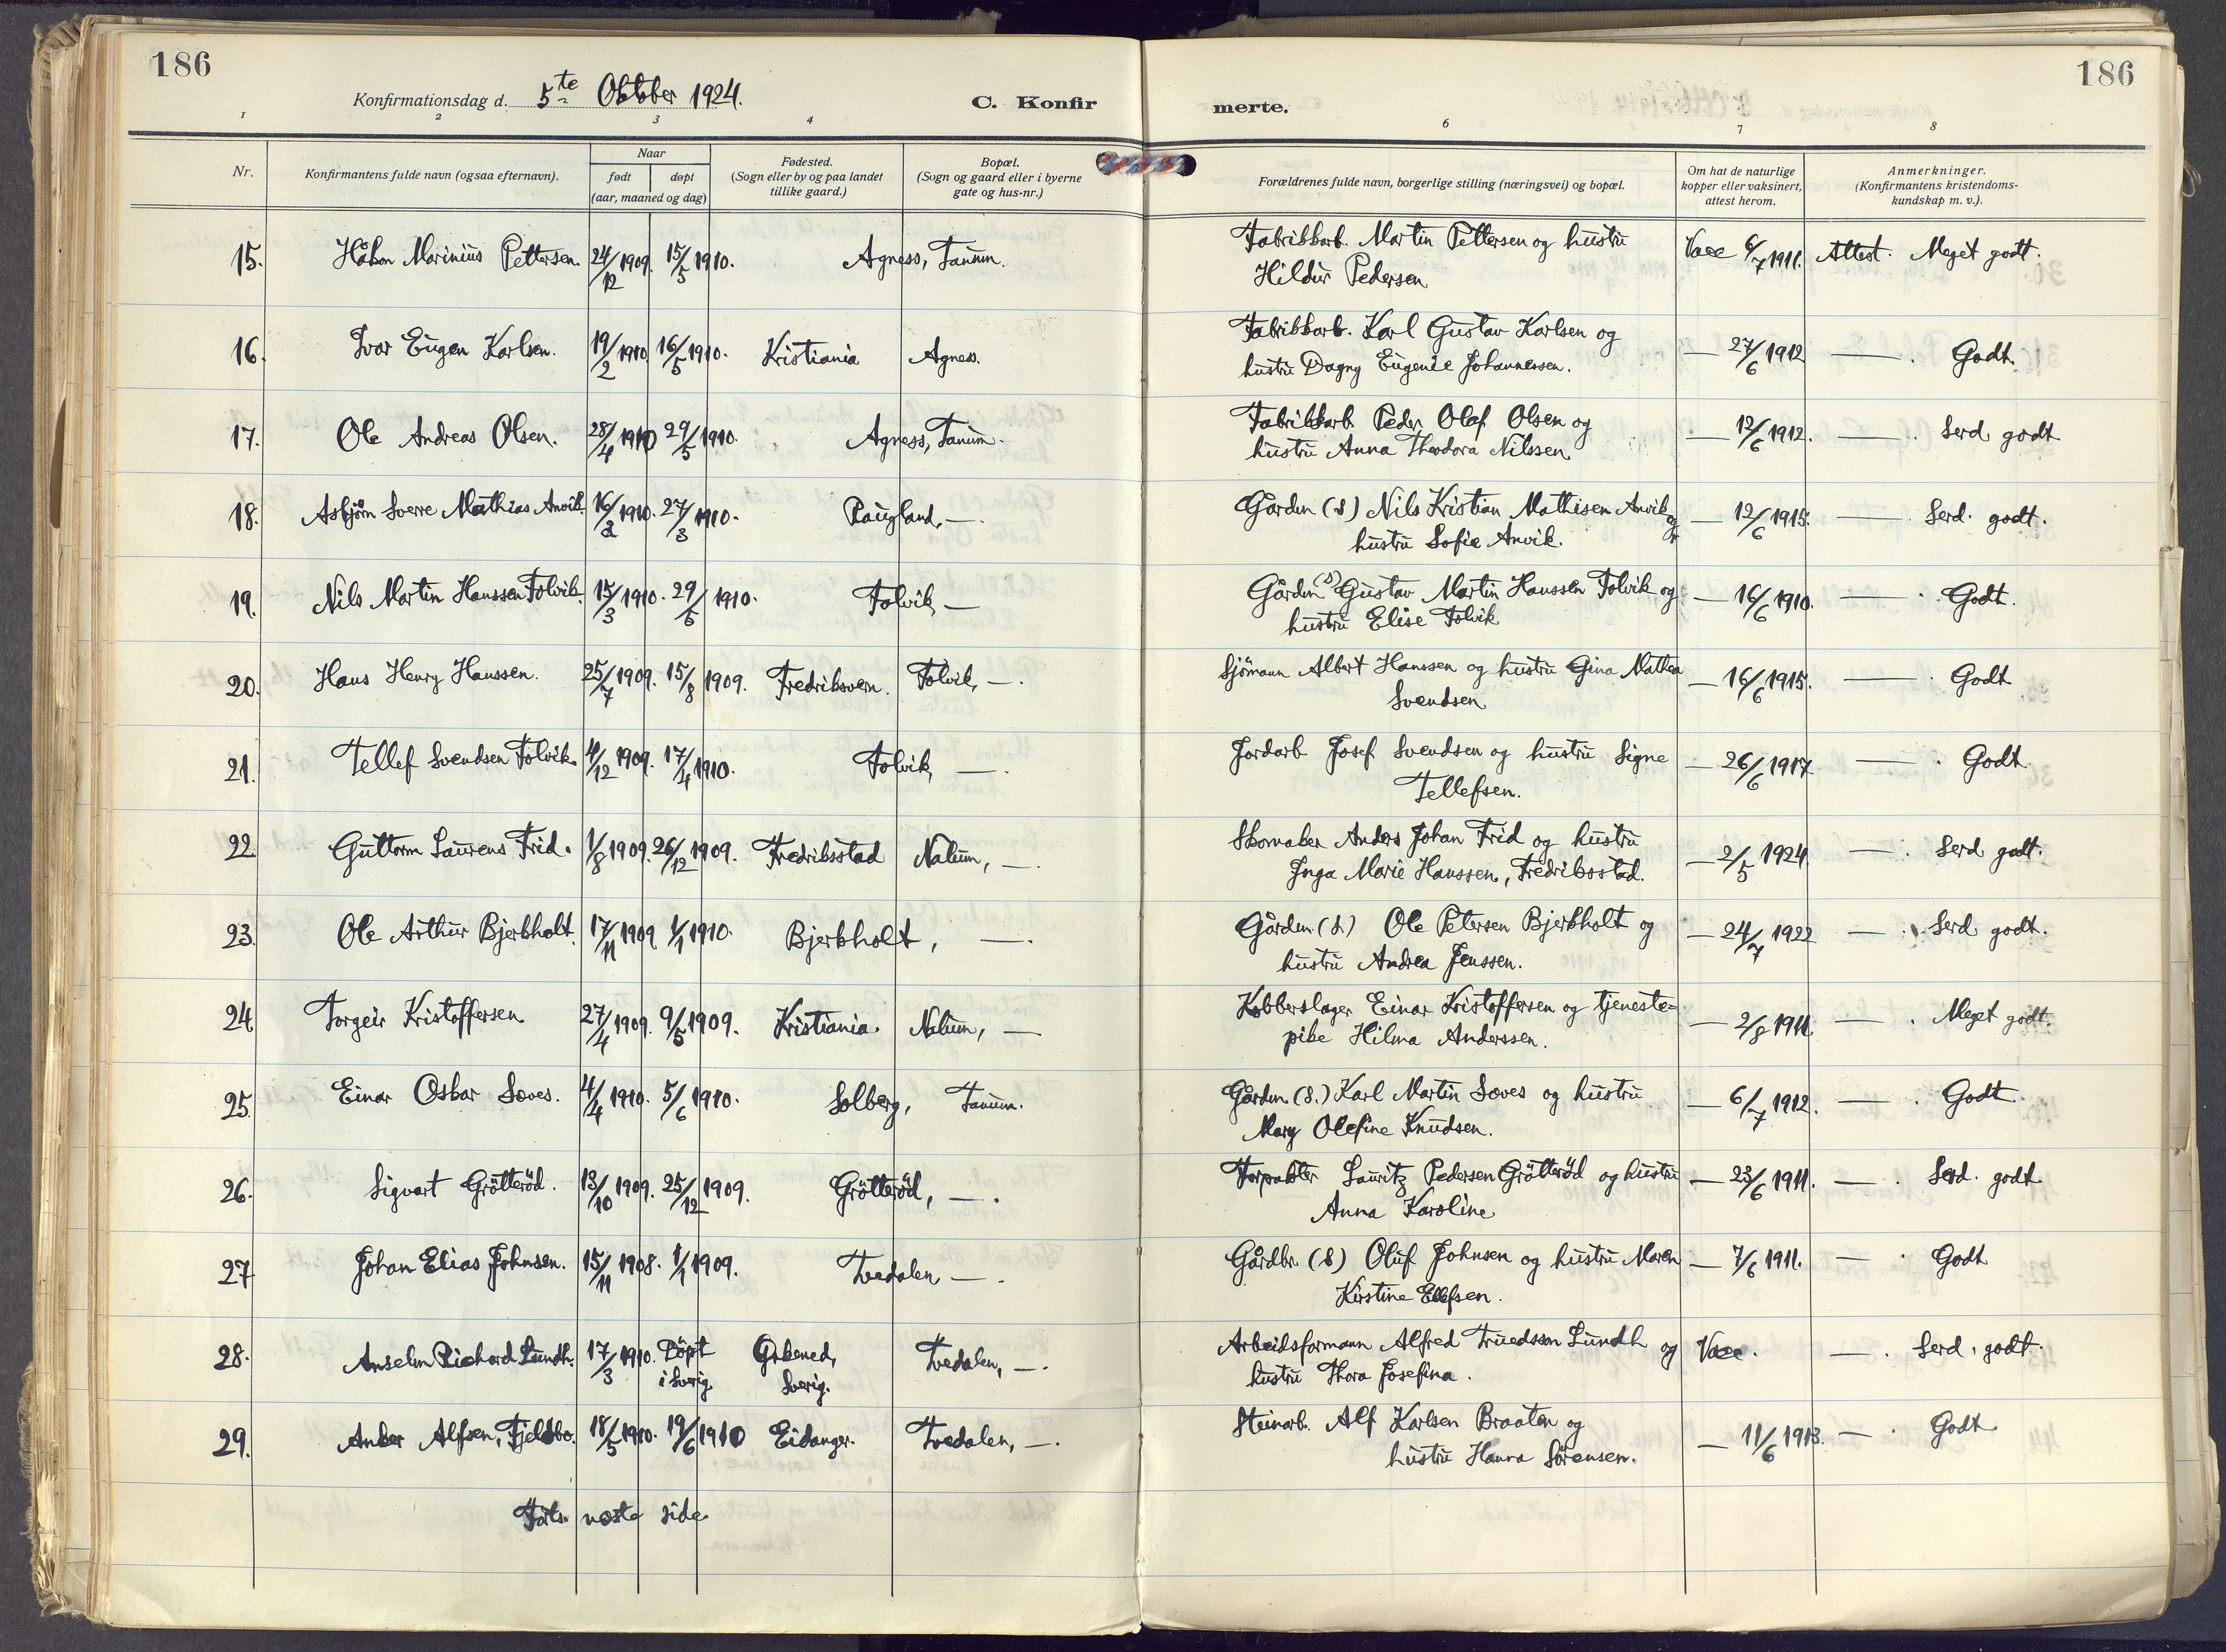 186
186
Konfirmationsdag d. 5te Oktober 1924.
C. Konfir
merte.
1 2 3 4 6 7 8
Nr.
Konfirmantens fulde navn (ogsaa efternavn).
Naar
født døpt
(aar, maaned og dag)
Fødested.
(Sogn eller by og paa landet
tillike gaard.)
Bopæl.
(Sogn og gaard eller i byerne
gate og hus-nr.)
Forældrenes fulde navn, borgerlige stilling (næringsvei) og bopæl.
Om hat de naturlige
kopper eller vaksinert,
attest herom.
Anmerkninger.
(Konfirmantens kristendoms-
kundskap m. v.).
15. Håkon Marinius Pettersen. 24/12 1909. 15/5 1910. Agness, Tanum. Fabrikkarb. Martin Pettersen og hustru Vacc 6/7 1911. Attest. Meget godt.
Hildur Pedersen
16. Ivar Eugen Karlsen. 19/2 1910. 16/5 1910. Kristiania Agness. Fabrikkarb. Karl Gustav Karlsen og — 27/6 1912 — . Godt.
hustru Dagny Eugenie Johannessen.
17. Ole Andreas Olsen. 28/4 1910 29/5 1910. Agness, Tanum. Fabrikkarb. Peder Olaf Olsen og — 12/6 1912. — . Serd. godt
hustru Anna Theodora Nilssen
18. Asbjörn Sverre Mathias Anvik. 16/2 1910. 27/3 1910. Paugland, —. Gårdm (S) Nils Kristian Mathisen Anvik og — 12/6 1915. — . Serd. godt.
hustru Sofie Anvik.
19. Nils Martin Hanssen Folvik. 15/3 1910. 29/5 1910. Folvik, — Gårdm (S) Gustav Martin Hanssen Folvik og — 16/6 1910. — . Godt.
hustru Elise Folvik
20. Hans Henry Hanssen. 25/7 1909. 15/8 1909. Fredriksvern. Folvik, —. Sjömann Albert Hanssen og hustru Gina Mathea — 16/6 1915. — . Godt
Svendsen
21. Tellef Svendsen Folvik. 4/12 1909. 17/4 1910. Folvik, —. Jordarb Josef Svendsen og hustru Signe — 26/6 1917 — . Godt
Tellefsen.
22. Guttorm Laurens Frid. 1/8 1909. 26/12 1909. Fredriksstad Nalum, —. Skomaker Anders Johan Frid og hustru — 2/5 1924. — . Serd. godt.
Inga Marie Hanssen, Fredriksstad.
23. Ole Arthur Bjerkholt. 17/11 1909 1/1 1910. Bjerkholt, —. Gårdm. (S.) Ole Petersen Bjerkholt og — 24/7 1922 — . Serd godt.
hustru Andrea Jenssen.
24 Torgeir Kristoffersen 27/4 1909. 9/5 1909. Kristiania. Nalum, — Kobberslager Einar Kristoffersen og tjeneste= — 2/8 1911. — . Meget godt.
pike Hilma Anderssen.
25. Einar Oskar Soves. 4/4 1910. 5/6 1910. Solberg, Tanum. Gårdm (S.) Karl Martin Soves og hustru — 6/7 1912. — . Godt
Mary Olefine Knudsen.
26. Sigvart Grötteröd. 13/10 1909. 25/12 1909. Grötteröd, —. Forpakter Lauritz Pedersen Grötteröd og hustru — 23/6 1911. — . Serd. godt
Anna Karoline
27 Johan Elias Johnsen. 15/11 1908. 1/1 1909. Tvedalen —. Gårdbr (S) Oluf Johnsen og hustru Maren — 7/6 1911. — . Godt
Kirstine Ellefsen.
28. Anselm Richard Lundh. 17/3 1910. Döpt Tvedalen, —. Arbeidsformann Alfred Truedsson Lundh og Vacc. — . Serd. godt.
i Sverig. Sverig. hustru Thora Josefina.
29. Anker Alfsen, Fjeldbo. 18/5 1910. 19/6 1910 Eidanger. Tvedalen, —. Steinarb. Alf Karlsen Braaten og — 11/6 1913. — . Godt
hustru Hanna Sörensen.
Forts. næste side